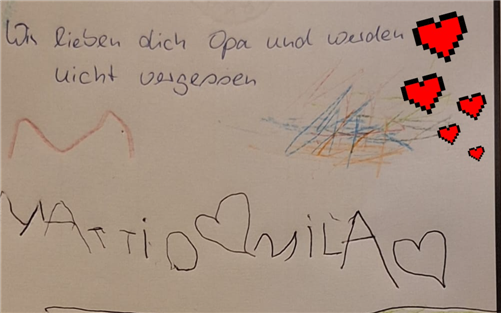 Wir lieben dich Opa und werden
nicht vergessen
YATTIO MILA